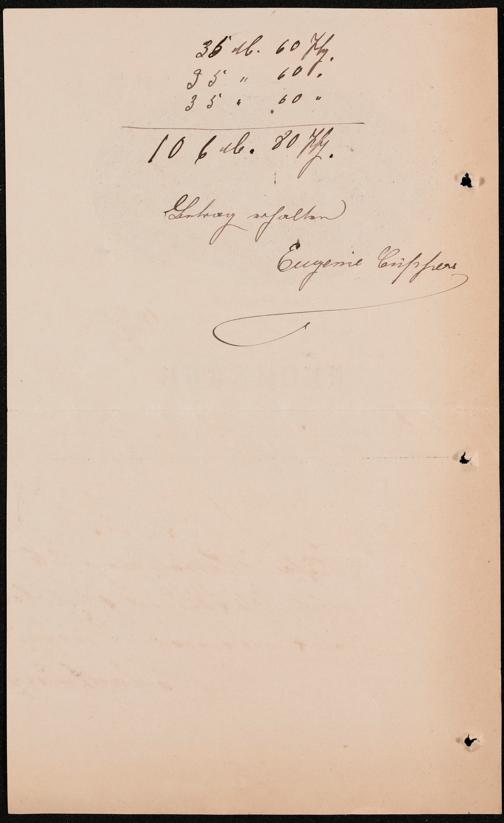 35 M. 60 Pfg.
35 " 60 "
35 " 60 "
106 M. 80 Pfg.
Betrag erhalten
Eugenie Cüppers